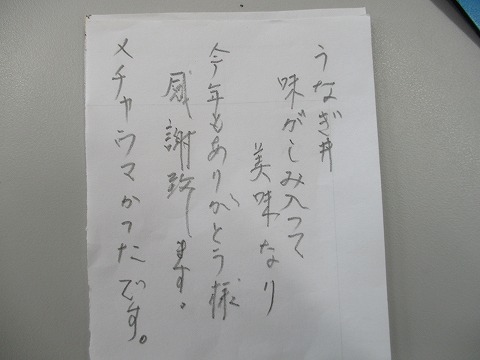 うなぎ丼
味がしみ入って
美味なり
今年もありがとう様
感謝致します。
メチャウマかったです。